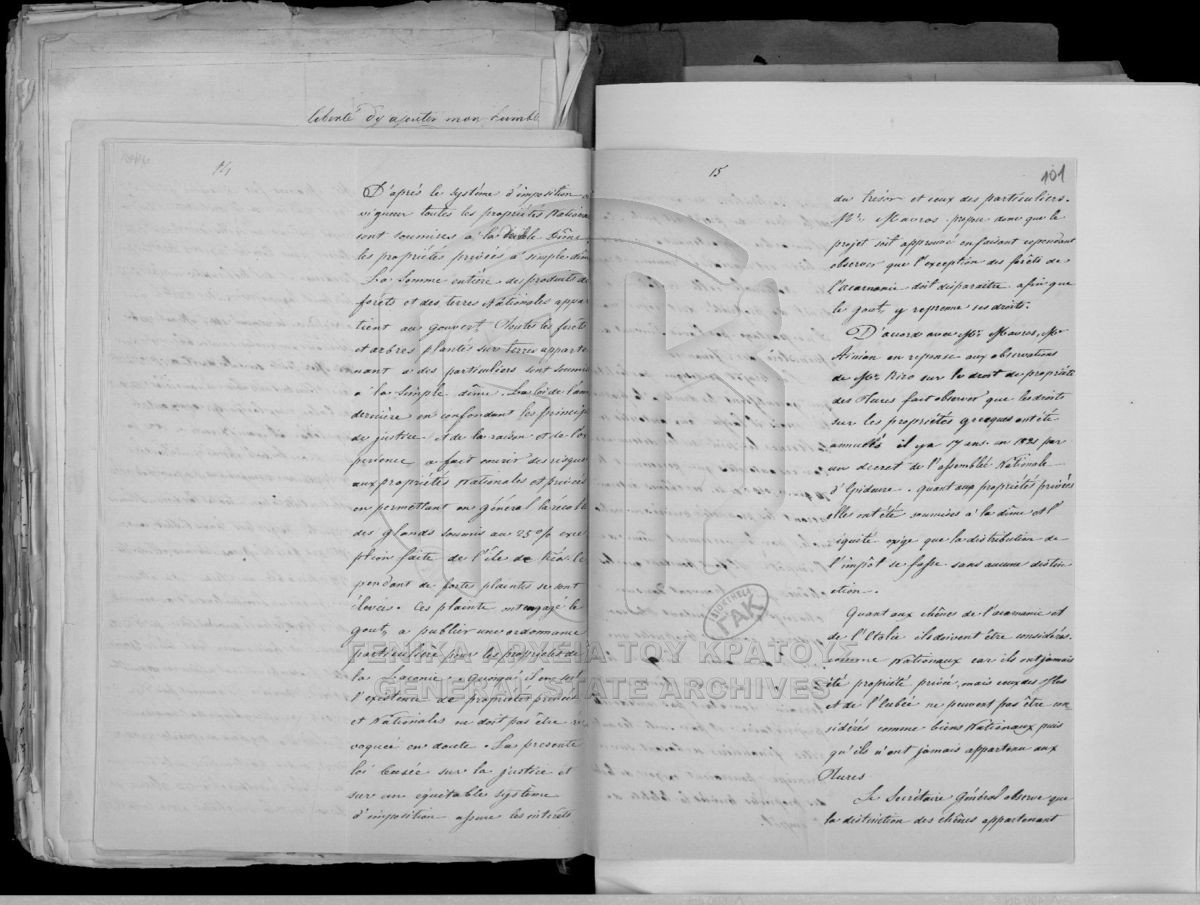 liberté d'y ajouter mon humbl
14
D'après le système d'imposition
vigueur toutes les propriétés Nationa
sont soumises à la double Dîme,
les propriétés privées à simple dîm
La Somme entière des produits de
forêts et des terres Nationales appar
tient au Gouvert, Toutes les forêts
et arbres plantés sur terres apparte
nant à des particuliers sont soumis
à la simple dîme. La loi de l'an
dernière en confondant les princip
de justice et de la raison et de l'ex
perience, a fait courir des risques
aux propriétés Nationales et privées
en permettant en général la récolte
des glands soumis au 25 % exce
ption faite de l'île de Kéa. Ce
pendant de fortes plaintes se sont
élevées. Ces plainte ont engagé le
gout, a publier une ordonnance
particulière pour les propriétés de
la Laconie. Quoiqu'il en soit
l'existence de propriétés privées
et Nationales ne doit pas être ré
voquée en doute. La presente
loi basée sur la justice et
sur un equitable système
d'imposition assure les intérêts
15
101
du trésor et ceux des particuliers.
Mr. Mavros propose donc que le
projet soit approuvé en faisant cependant
observer que l'exception des forêts de
l'acarnanie doit disparaître afin que
le gout, y reprenne ses droits.
D'accord avec Mr. Mavros, Mr
Ainian en reponse aux observations
de Mr. Rizo sur le droit de propriété
des Turcs fait observer que les droits
sur les propriétés grecques ont été
annullés il y a 17 ans en 1821 par
un decret de l'assemblée Nationale
d'Epidaure. Quant aux propriétés privées
elles ont été soumises à la dîme et l'
équité exige que la distribution de
l'impôt se fasse sans aucune distin
ction.
Quant aux chênes de l'acarnanie et
de l'Etolie ils doivent être considérés
comme Nationaux car ils n'ont jamais
été propriété privée, mais ceux des Isles
et de l'Eubée ne peuvent pas être con
sidérés comme biens Nationaux puis
qu'ils n'ont jamais appartenu aux
Turcs
Le Secrétaire Général observe que
la distinction des chênes appartenant
ΓΑΚ
ΓΕΝΙΚΑ ΑΡΧΕΙΑ ΤΟΥ ΚΡΑΤΟΥΣ
GENERAL STATE ARCHIVES